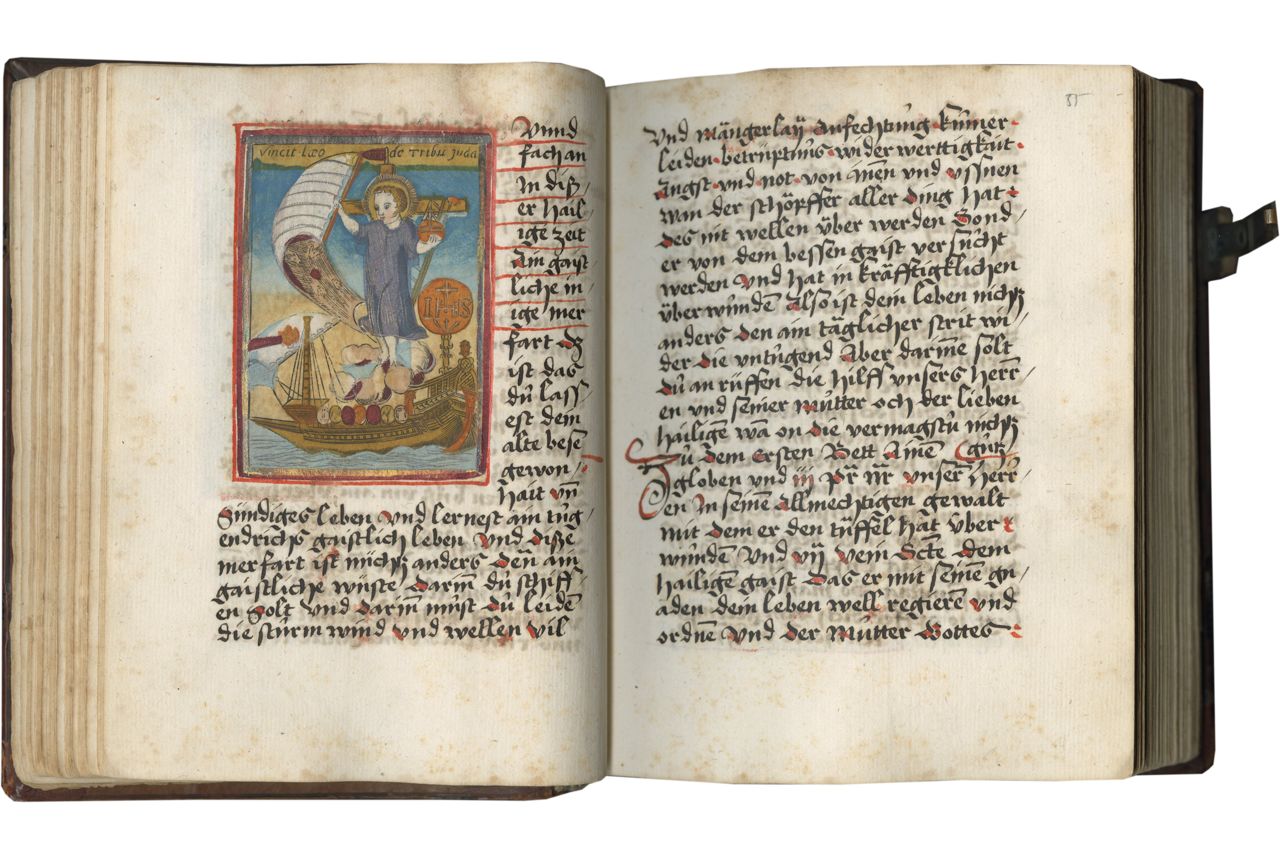 vincit Leo de Tribu Juda
IHS
Vnnd
fach an
In diß/
er hail/
ige zeit
Ain gaist
liche in/
ige mer
fart Dz
ist das
dů lass/
est dein
alte besē
gewon/
hait vn̄
Sündiges leben Vnd lernest ain tůg/
endrichs gaistlich leben Vnd diße
mer fart ist nichtz anders den̄ ain
gaistliche wüste Darin̄ dů schiff/
en Solt Vnd darin̄ můst dů leidē
die stůrm wind vnd wellen vil
35
Vnd mängerlaÿ Anfechtůng kům̄er
leiden betrüptnůs wider werttigkait
Angst vnd not von In̄en vnd vssnen
wan der schöpffer aller ding hat
des nit wellen über werden Sond/
er von dem bessen gaist versůcht
werden Vnd hat in kräfftigklichen
über wůnden Also ist dem leben nichtz
anders den ain täglicher strit wi/
der die vntůgend Aber darin̄e solt
Dů an rüffen die hilff vnsers herr/
en vnd seiner Můtter och der lieben
hailigen wā on die vermagstů nichtz
Zů dem ersten Bett Amē
globen vnd iij pr nr vnserm herr/
en In seinē Allmechtigen gewalt
mit dem er den tüffel hat über
wůnden Vnd vij vem Scte dem
hailigen gaist Das er mit seinē gn/
aden dein leben well regierē vnd
ordnē Vnd der Můtter Gottes